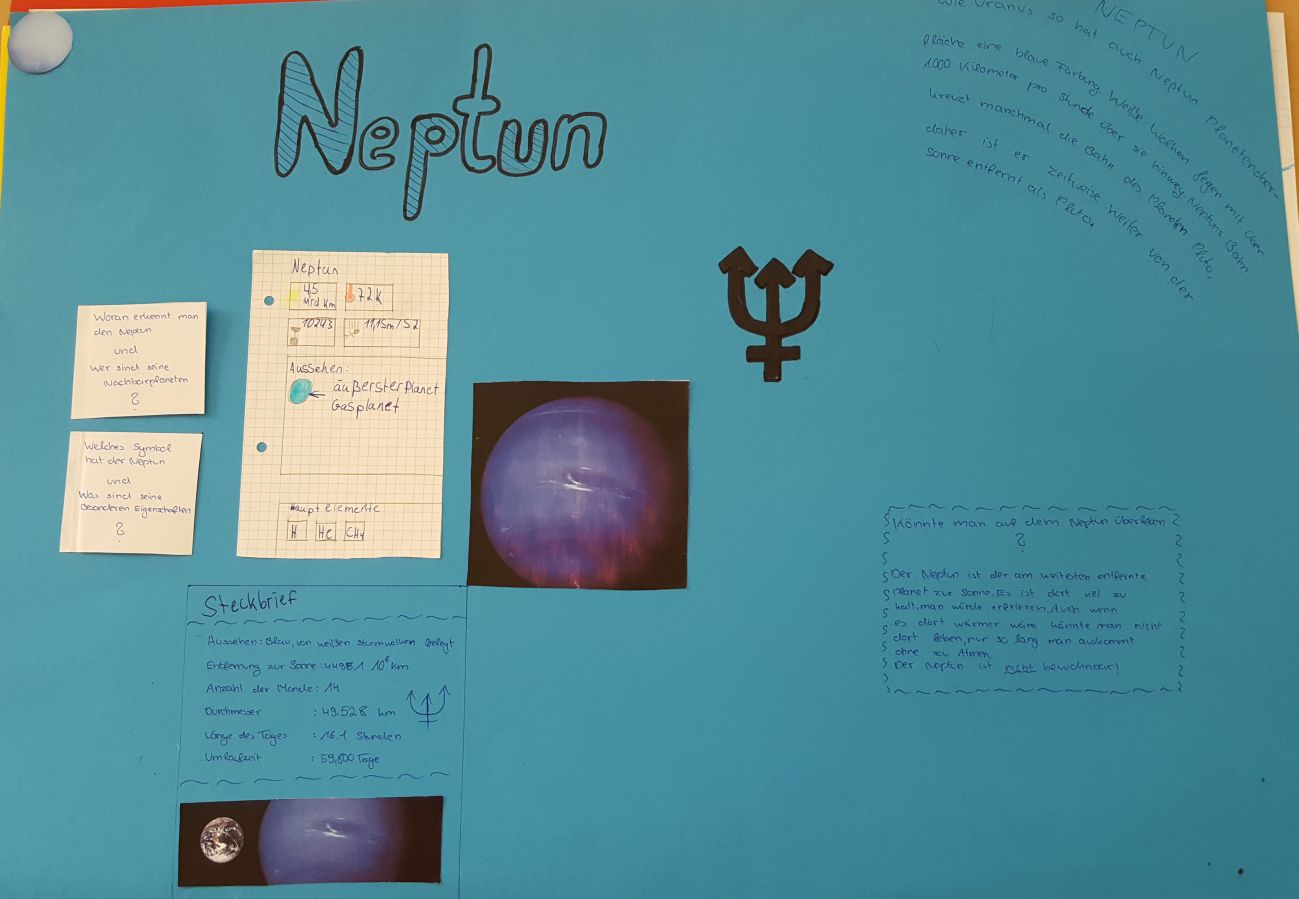 Neptun
NEPTUN
Wie Uranus so hat auch Neptun Planetenober-
fläche eine blaue Färbung. Weiße Wolken fegen mit über
1000 Kilometer pro Stunde über sie hinweg. Neptuns Bahn
kreuzt manchmal die Bahn des Planeten Pluto,
daher ist er zeitweise weiter von der
Sonne entfernt als Pluto.
Woran erkennt man
den Neptun
und
Wer sind seine
Nachbarplaneten
?
Welches Symbol
hat der Neptun
und
Was sind seine
Besonderen Eigenschaften
?
Neptun
4,5
Mrd Km
72K
10243
11,15m/s2
Aussehen:
äußerster Planet
Gasplanet
Hauptelemente
H
He
CH4
Steckbrief
Aussehen: Blau, von weißen Sturmwolken belegt
Entfernung zur Sonne: 4498,1 10⁶ km
Anzahl der Monde: 14
Durchmesser : 49.528 km
Länge des Tages : 16.1 Stunden
Umlaufzeit : 59,800 Tage
Könnte man auf dem Neptun überleben
?
Der Neptun ist der am weitesten entfernte
Planet zur Sonne. Es ist dort viel zu
kalt, man würde erfrieren. Auch wenn
es dort wärmer wäre könnte man nicht
dort leben, nur so lang man auskommt
ohne zu Atmen.
Der Neptun ist nicht bewohnbar!